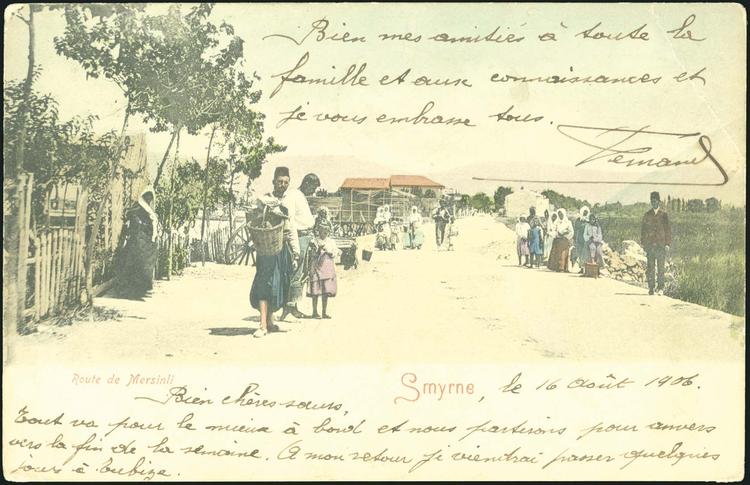 Bien mes amitiés à toute la
famille et aux connaissances et
je vous embrasse tous.
Fernand
Route de Mersinli
Smyrne, le 16 Août 1906.
Bien chères sœurs,
Tout va pour le mieux à bord et nous partirons pour anvers
vers la fin de la semaine. A mon retour je viendrai passer quelques
jours à Tubize.